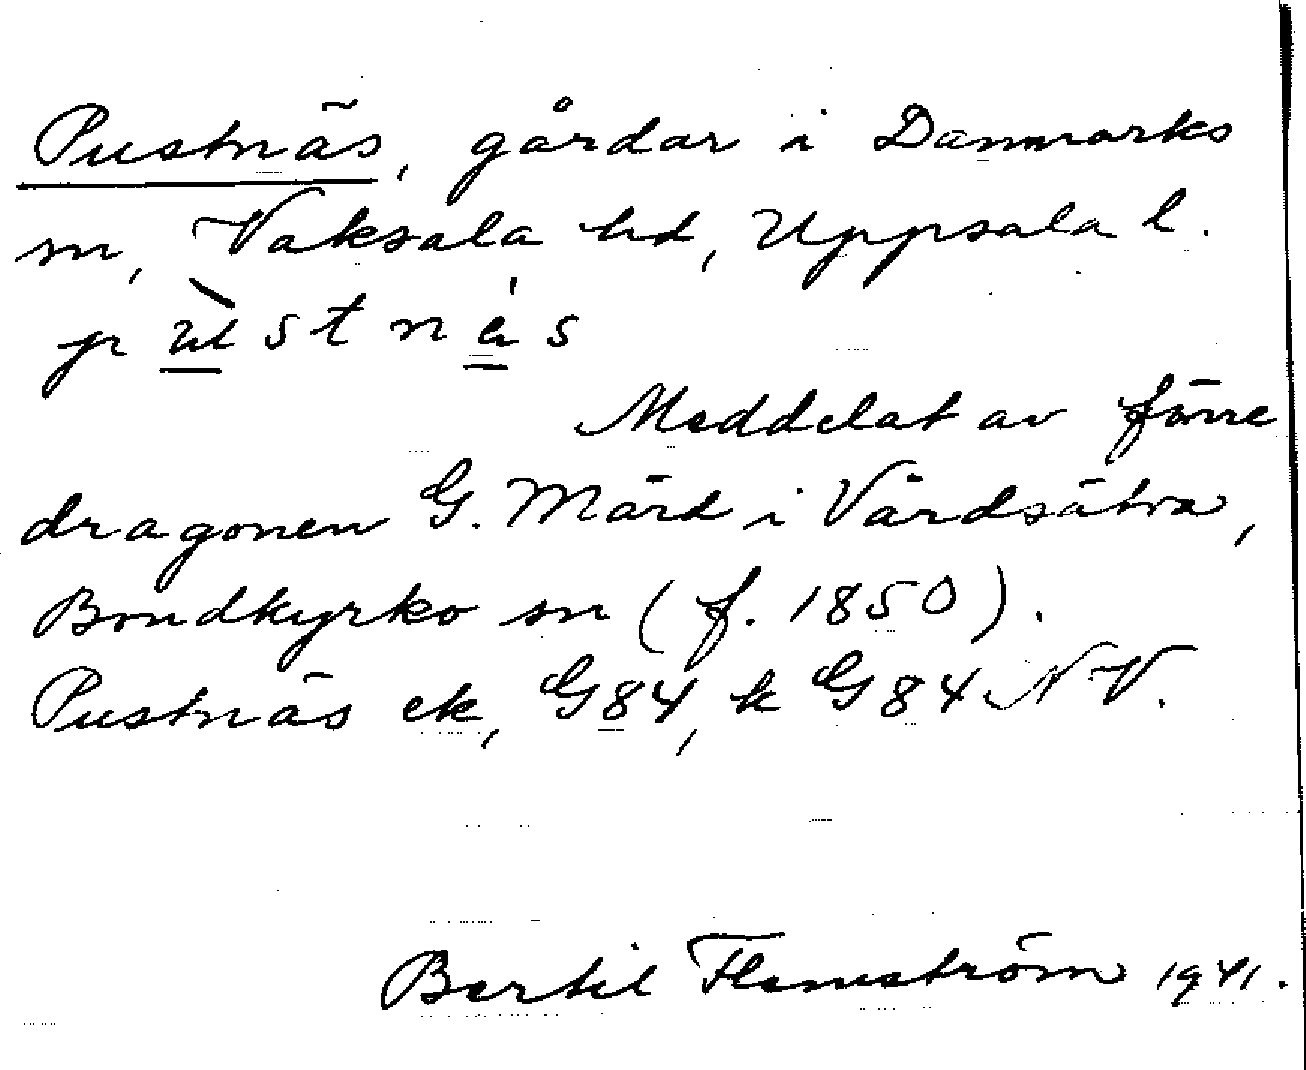 Pustnäs, gårdar i Danmarks
sn, Vaksala hd, Uppsala l.
pùstnás
Meddelat av förre
dragonen G. Mård i Vårdsätra,
Bondkyrko sn (f. 1850).
Pustnäs ek, G84, k G84 NV.
Bertil Flemström 1941.